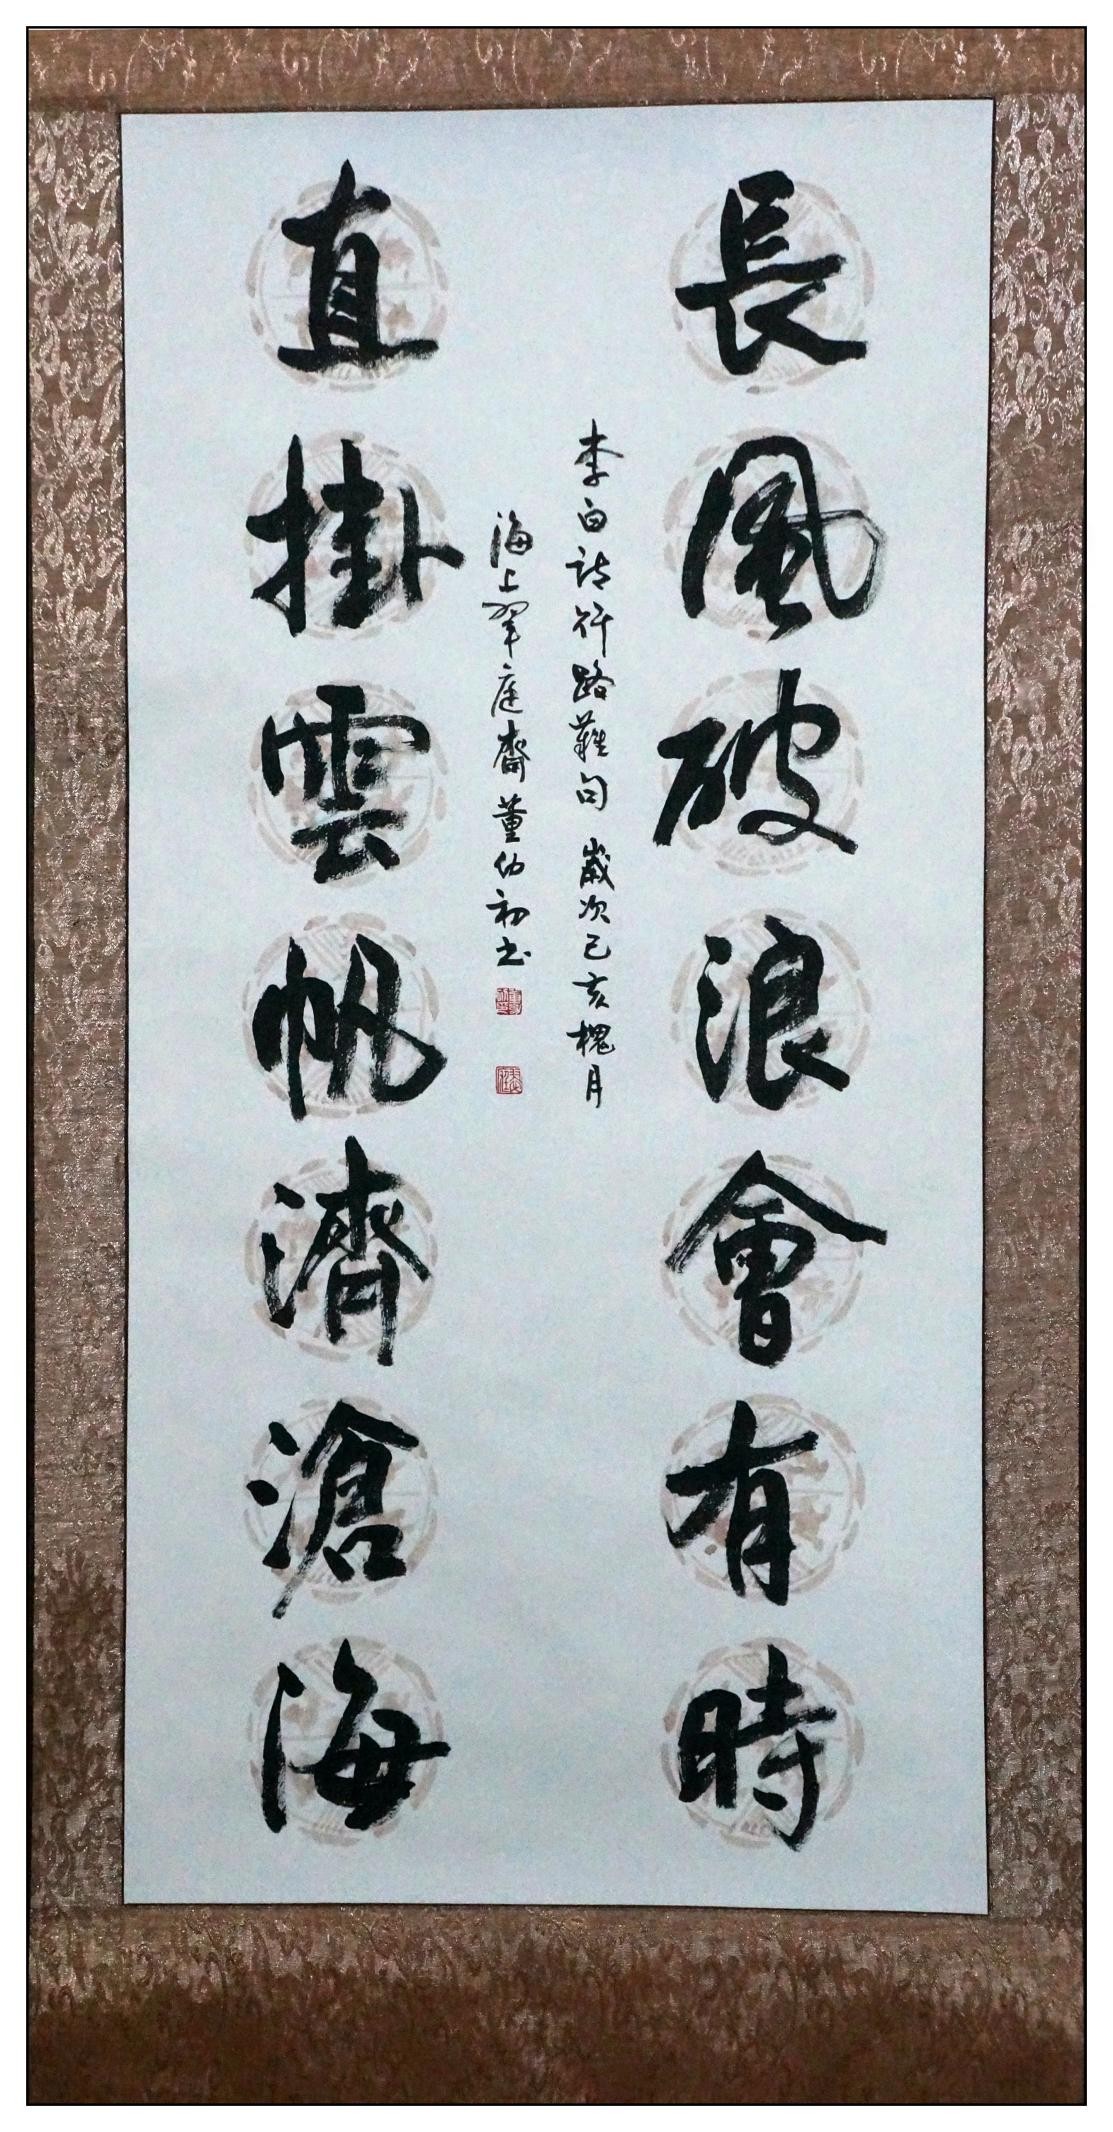 長風破浪會有時
直掛雲帆濟滄海
李白詩行路難句 歲次己亥槐月
海上翠庭齋董幼初书